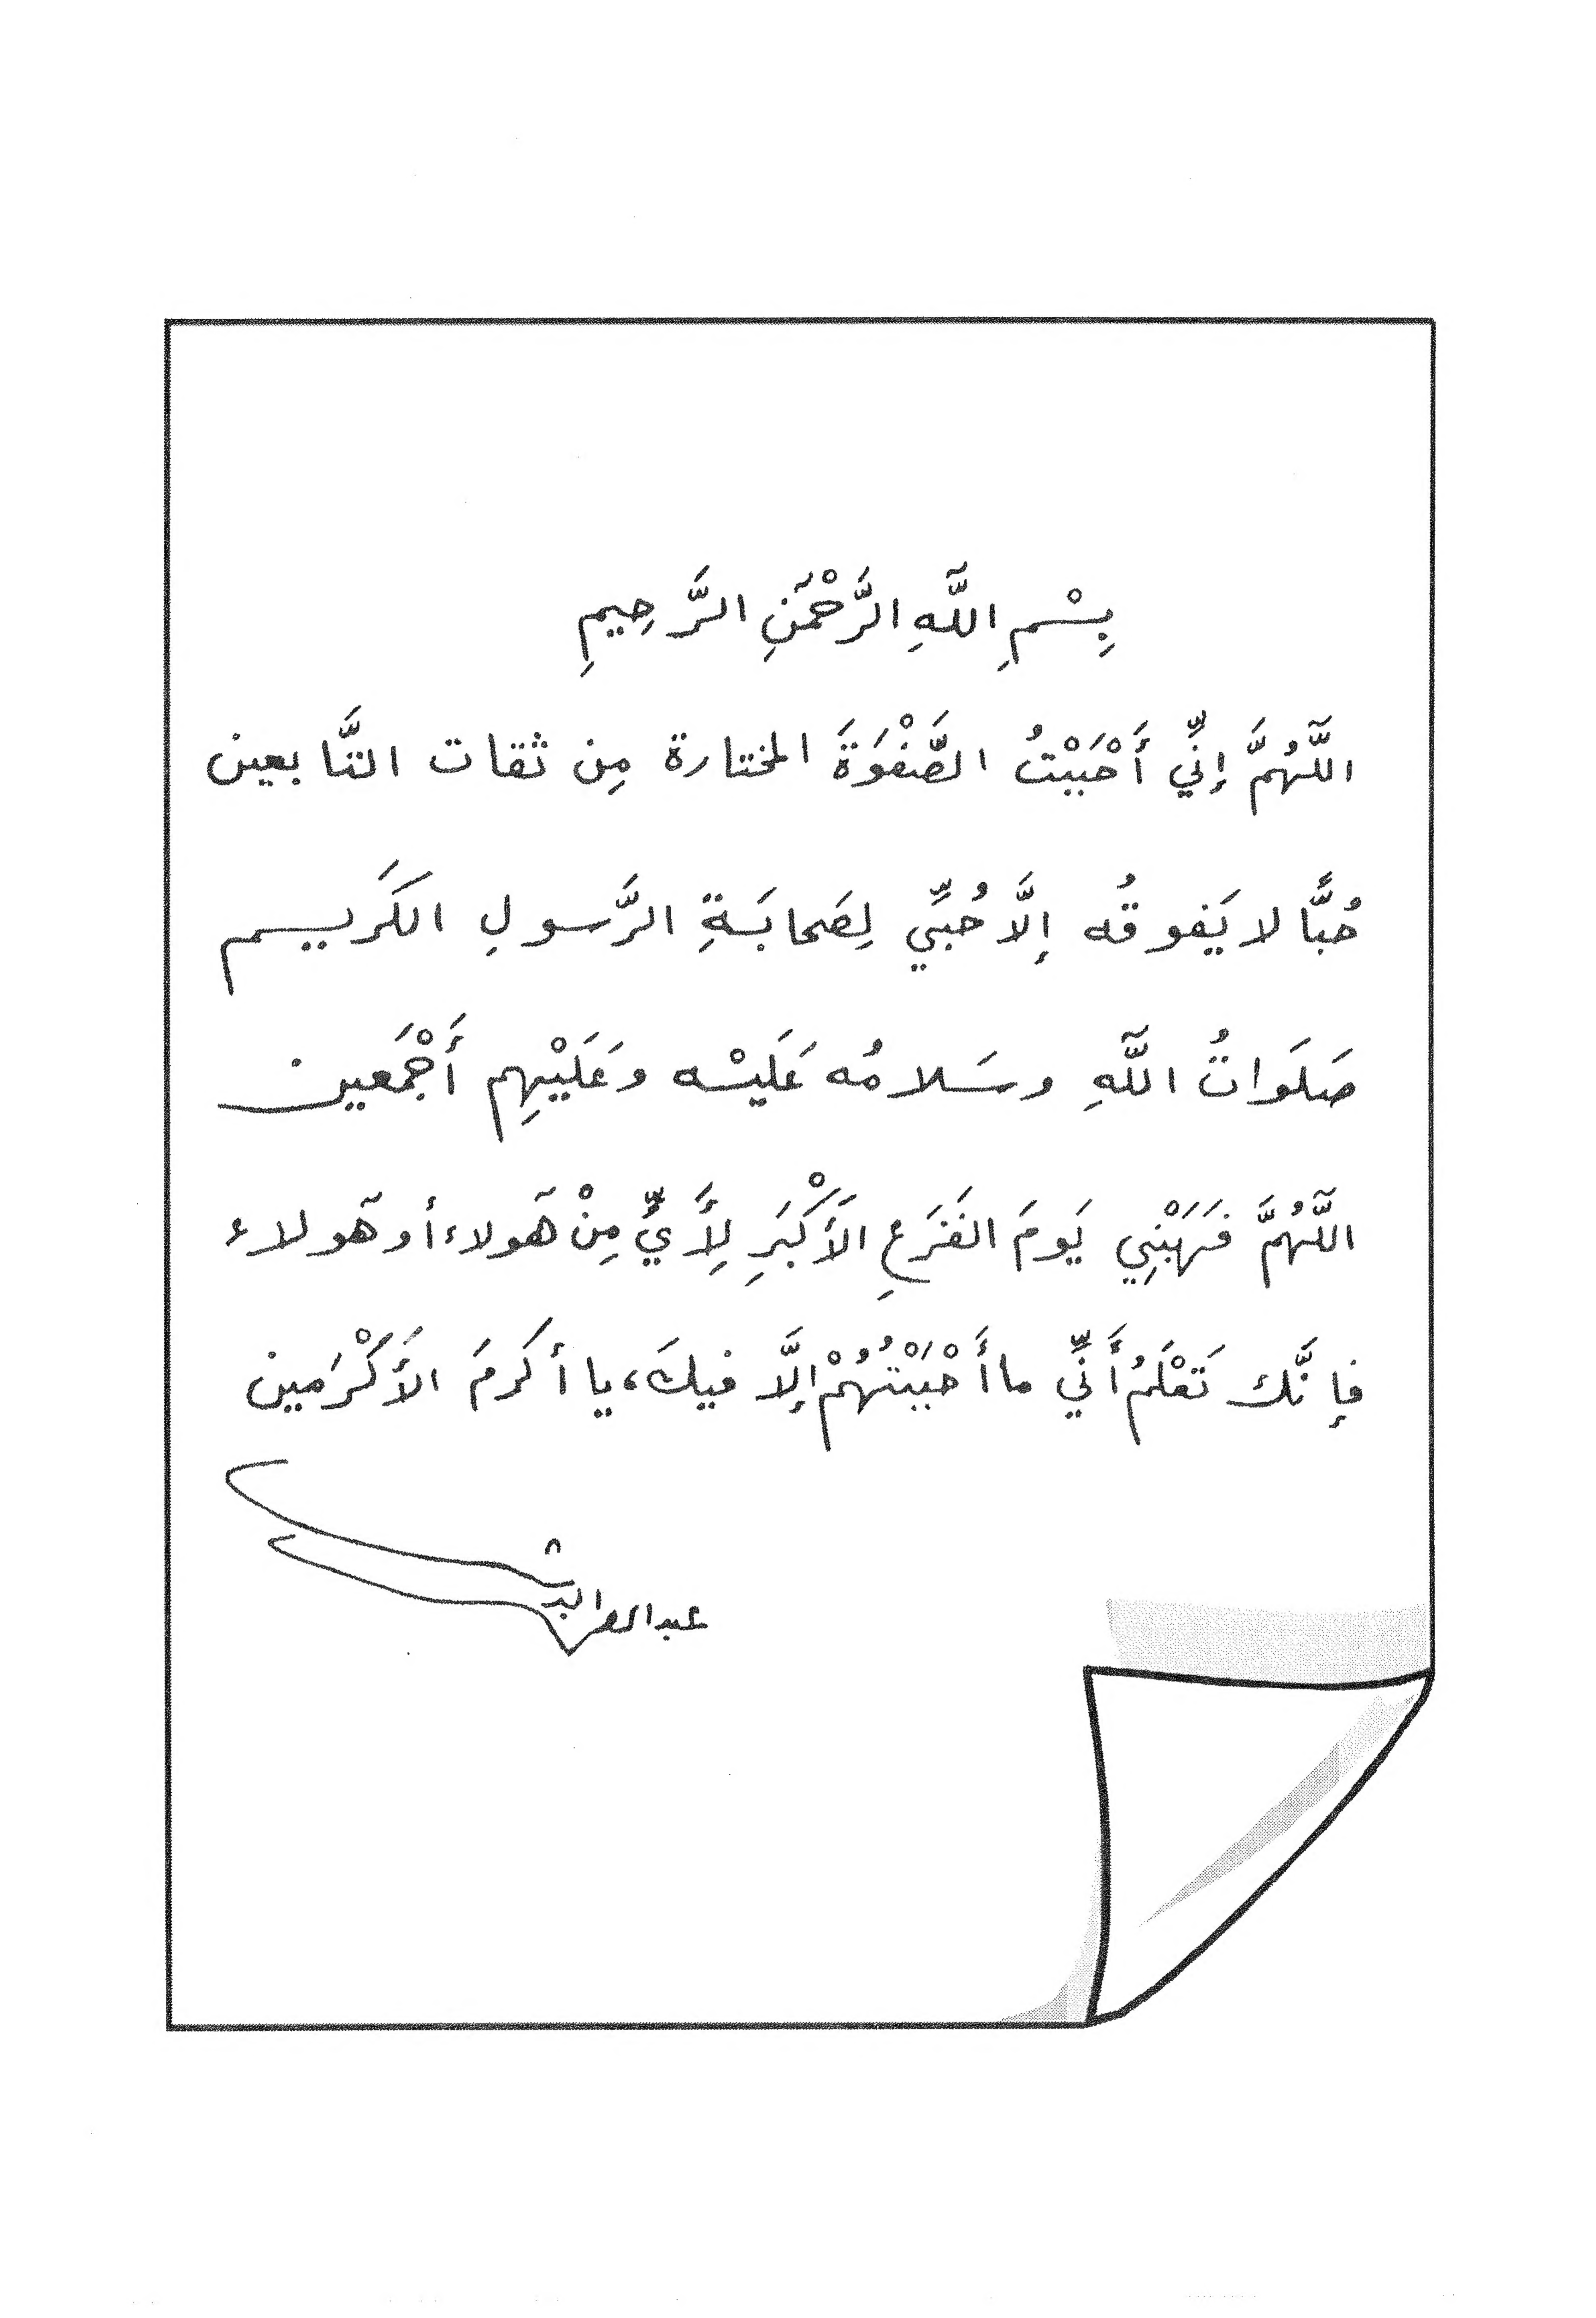 بِسْمِ اللَّهِ الرَّحْمَنِ الرَّحِيمِ
اللَّهُمَّ إِنِّي أَحْبَبْتُ الصَّفْوَةَ المختارة مِن ثقات التَّابعين
حُبًّا لا يَفوقُه إلَّا حُبِّي لِصَحابَةِ الرَّسولِ الكَريم
صَلَوَاتُ اللَّهِ وسَلامُه عَلَيْه وعَلَيْهِم أَجْمَعين
اللَّهُمَّ فَهَبْنِي يَومَ الفَزَعِ الأَكْبَرِ لِأَيٍّ مِنْ هَولاء أو هَولاء
فإنَّك تَعْلَمُ أَنِّي ما أَحْبَبْتُهُمْ إلَّا فيكَ، يا أكرمَ الأَكْرَمين